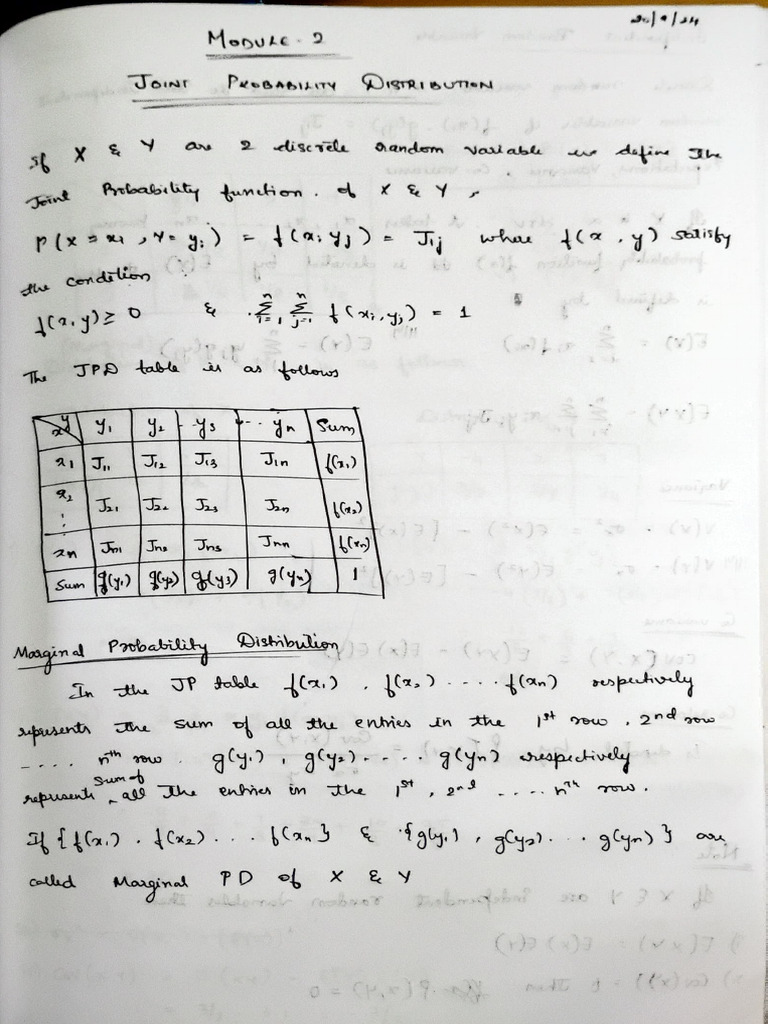 20/9/24
MODULE - 2
JOINT PROBABILITY DISTRIBUTION
If X & Y are 2 discrete random variable we define the
Joint Probability function. of X & Y,
P(X = xi , Y = yj) = f(xi yj) = Jij where f(x, y) satisfy
the condition :
f(x,y) ≥ 0 & Σ(i=1 to n) Σ(j=1 to n) f(xi, yj) = 1
The JPD table is as follows
x\y y1 y2 - y3 ... yn Sum
x1 J11 J12 J13 J1n f(x1)
x2 J21 J22 J23 J2n f(x2)
⋮
xn Jn1 Jn2 Jn3 Jnn f(xn)
Sum g(y1) g(y2) g(y3) g(yn) 1
Marginal Probability Distribution
In the JP table f(x1) , f(x2) .... f(xn) respectively
represents the sum of all the entries in the 1st row, 2nd row
.... nth row. g(y1), g(y2) ..... g(yn) respectively
represents sum of all the entries in the 1st, 2nd .... nth row.
If {f(x1) . f(x2) ... f(xn} & {g(y1) , g(y2) ... g(yn)} are
called Marginal PD of X & Y